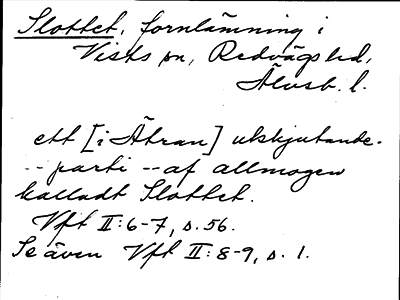 Slottet, fornlämning i
Vists sn, Redvägs hd,
Älvsb. l.
ett [i Ätran] utskjutande -
-- parti -- af allmogen
kalladt Slottet.
Vft II:6-7, s. 56.
Se även Vft II:8-9, s. 1.